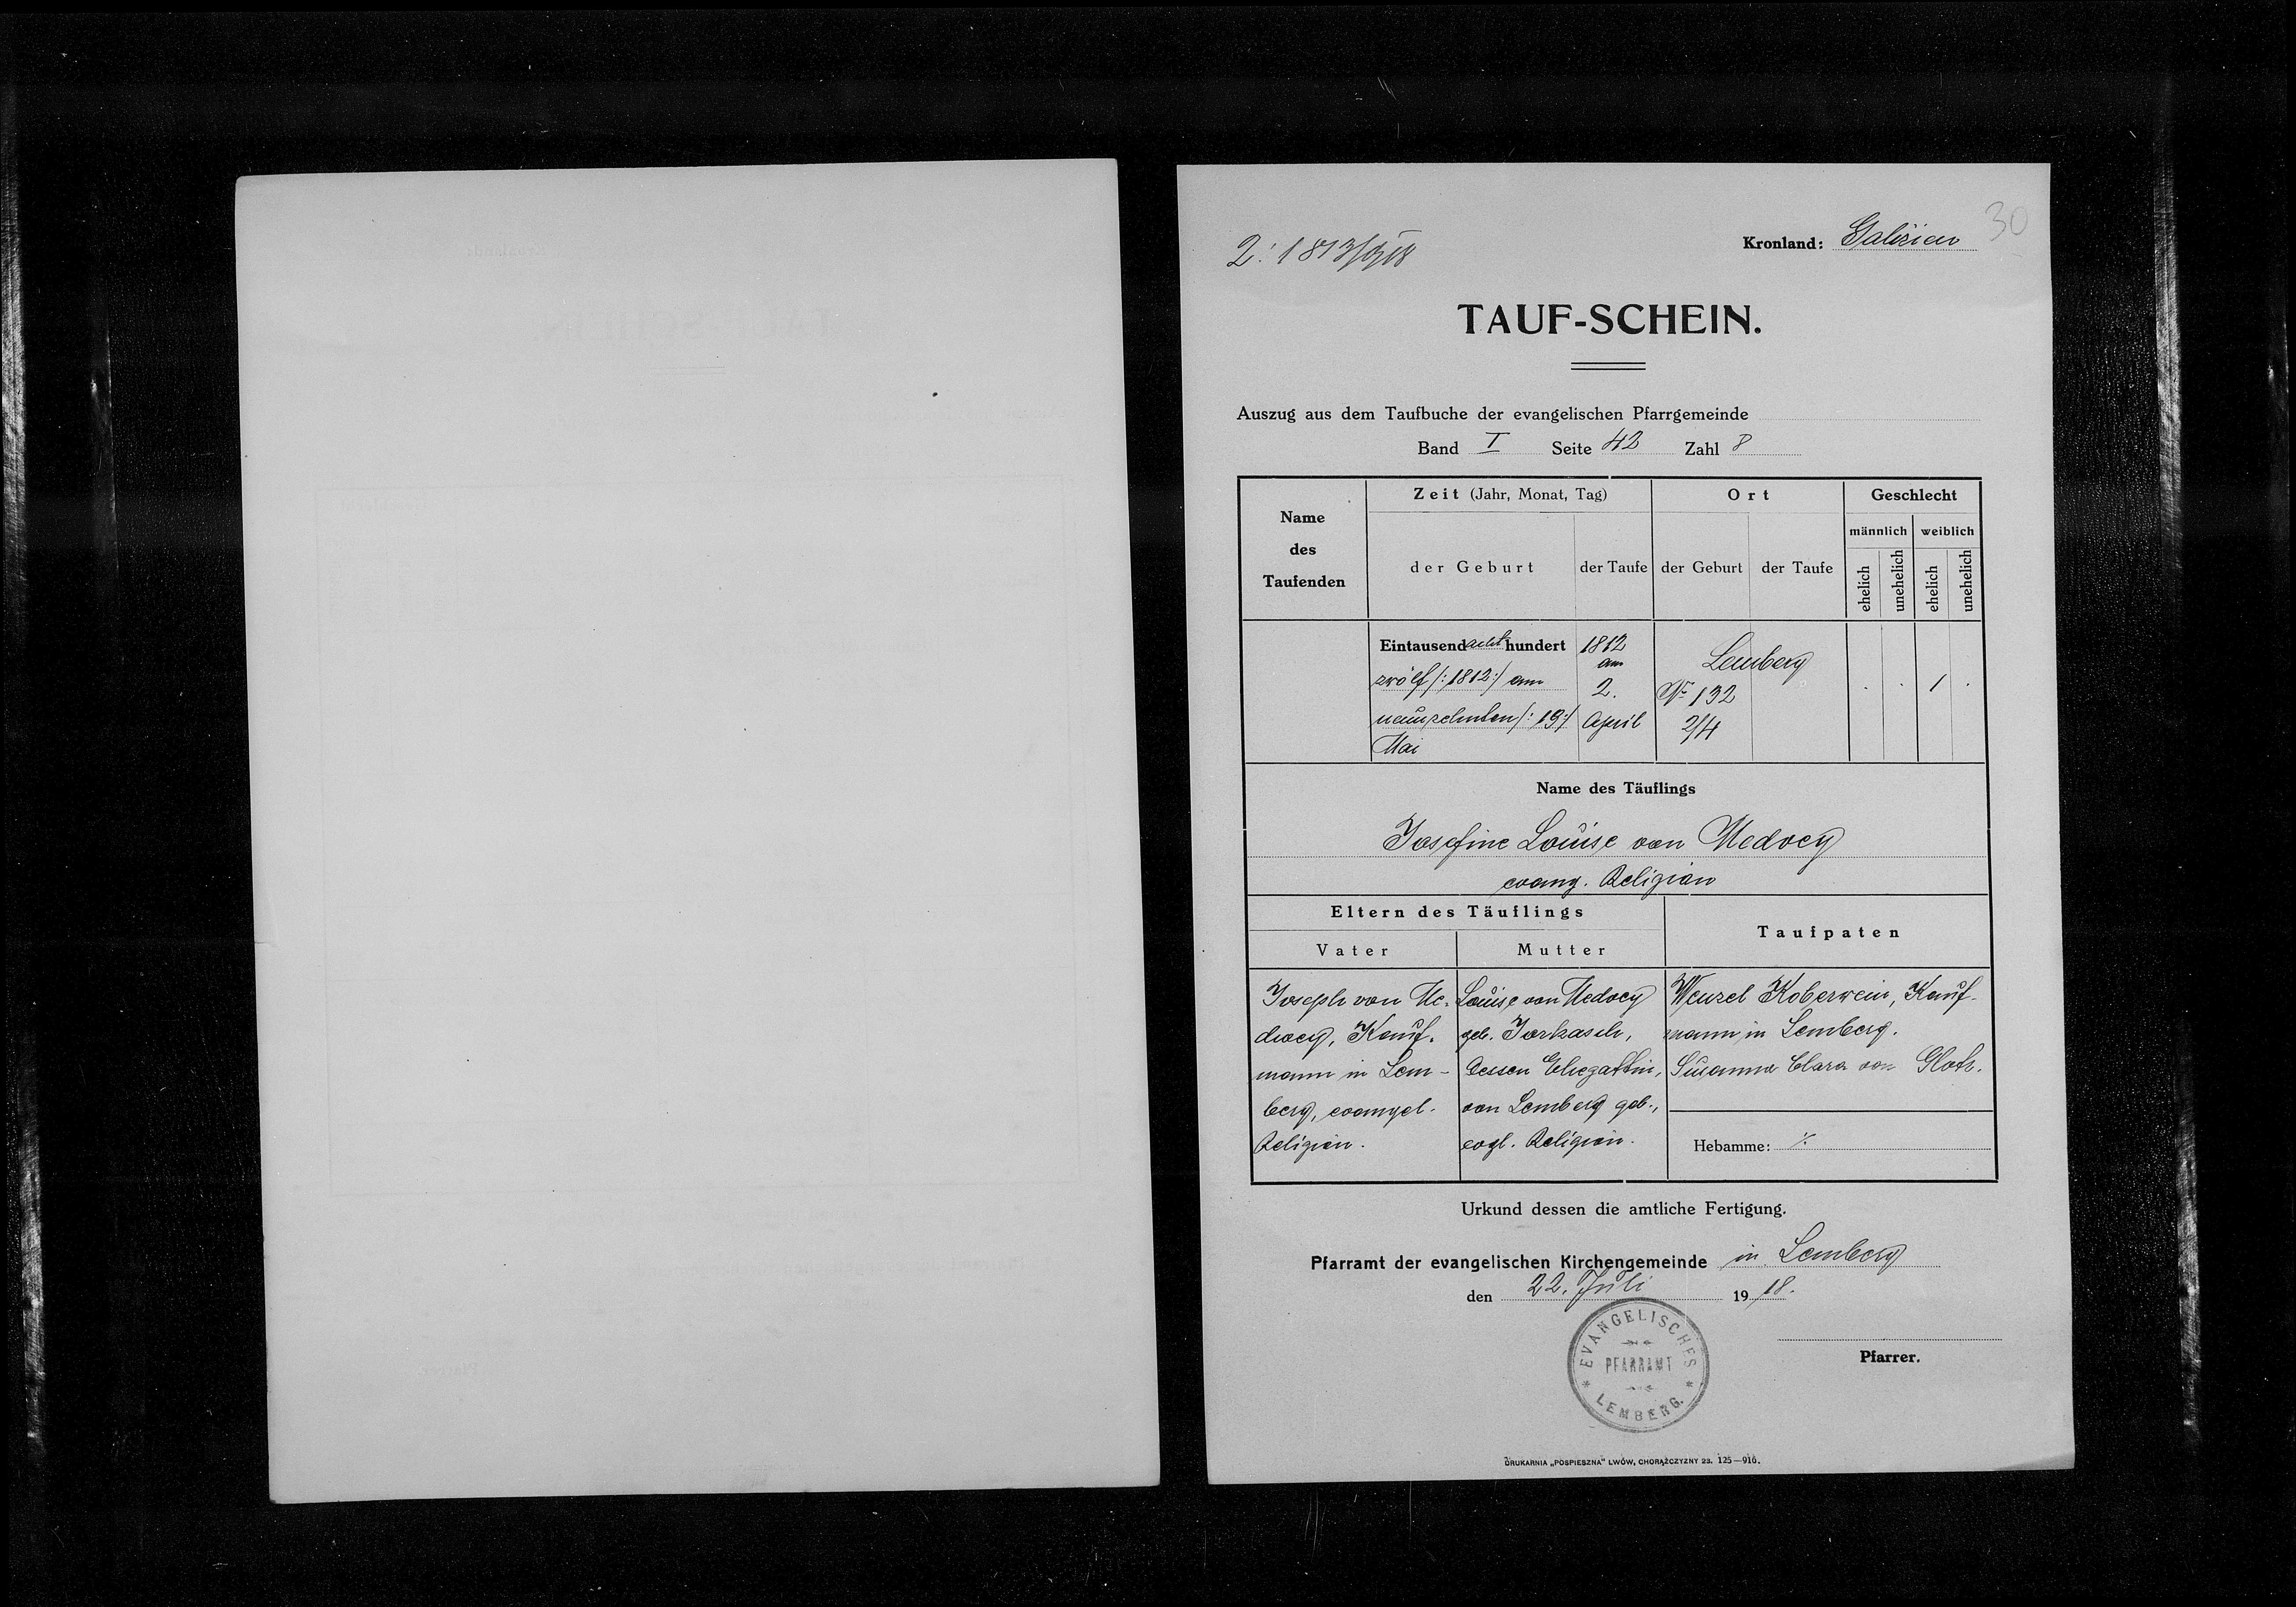 30
Kronland: Galizien
Z: 1813/918
TAUF-SCHEIN.
Auszug aus dem Taufbuche der evangelischen Pfarrgemeinde
Band I Seite 42 Zahl 8
Name des Taufenden
Zeit (Jahr, Monat, Tag)
der Geburt
der Taufe
Ort
der Geburt
der Taufe
Geschlecht
männlich
weiblich
ehelich
unehelich
ehelich
unehelich
Eintausend acht hundert
zwölf /: 1812 :/ am
neunzehnten /: 19 :/
Mai
1812
am
2.
April
Lemberg
No 132
2/4
1
Name des Täuflings
Josefine Louise von Medvey
evang. Religion
Eltern des Täuflings
Vater
Mutter
Taufpaten
Joseph von Me-
dvey, Kauf-
mann in Lem-
berg, evangel.
Religion.
Louise von Medvey
geb. Jarkasch,
dessen Ehegattin,
von Lemberg geb.,
evgl. Religion.
Wenzel Koberwein, Kauf-
mann in Lemberg.
Susanna Clara von Glotz.
Hebamme: ·/.
Urkund dessen die amtliche Fertigung.
Pfarramt der evangelischen Kirchengemeinde in Lemberg
den 22. Juli 1918.
EVANGELISCHES
PFARRAMT
LEMBERG.
Pfarrer.
DRUKARNIA „POSPIESZNA" LWÓW, CHORĄŻCZYZNY 23. 125—916.